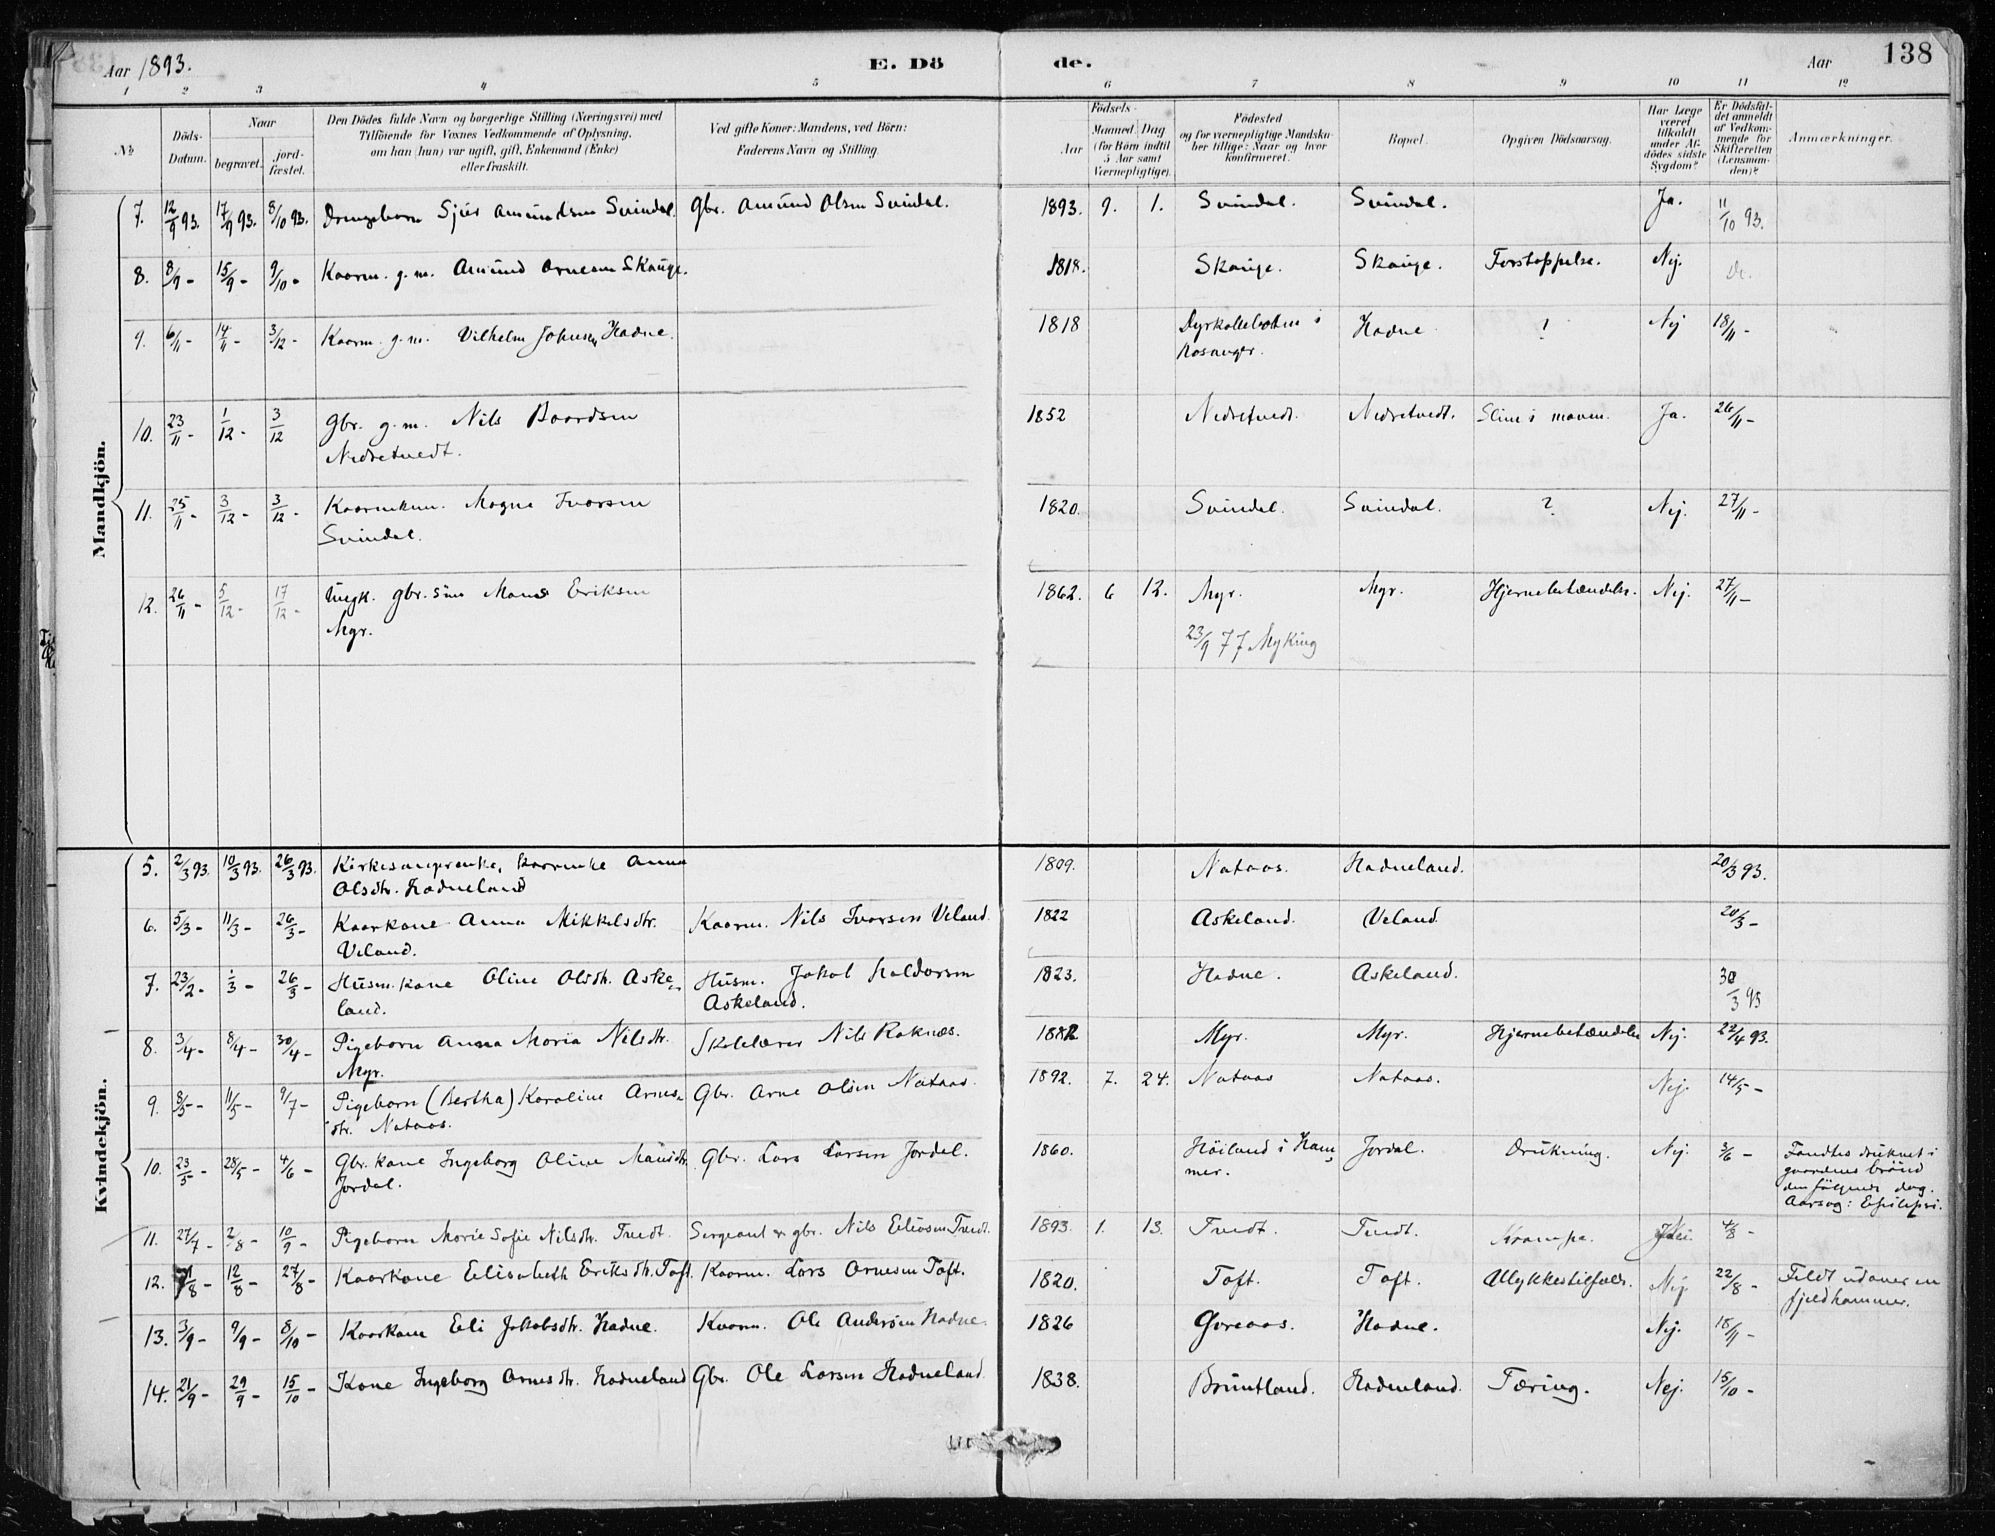 Aar 1893. E. Dö de. Aar 138
1 2 3 4 5 6 7 8 9 10 11 12
№
Döds-Datum.
Naar
begravet.
jord-fæstet.
Den Dödes fulde Navn og borgerlige Stilling (Næringsvei) med
Tilföiende for Voxnes Vedkommende af Oplysning,
om han (hun) var ugift, gift, Enkemand (Enke)
eller fraskilt.
Ved gifte Koner: Mandens, ved Börn:
Faderens Navn og Stilling.
Födsels-
Aar
Maaned. Dag
(for Börn indtil
5 Aar samt
Værnepligtige).
Födested
og for værnepligtige Mandska-
ber tillige: Naar og hvor
konfirmeret.
Bopæl.
Opgiven Dödsaarsag.
Har Læge
været
tilkaldt
under Af-
dödes sidste
Sygdom?
Er Dödsfal-
det anmeldt
af Vedkom-
mende for
Skifteretten
(Lensman-
den)?
Anmærkninger.
Mandkjön.
7. 12/9 93. 17/9 93. 8/10 93. Drengebarn Sjur Amundsen Svindal. Gbr. Amund Olsen Svindal. 1893. 9. 1. Svindal. Svindal. Ja. 11/10 93.
8. 8/9 - 15/9 - 9/10 - Kaarm. g.m. Amund Arnesen Skauge. 1818. Skauge. Skauge. Forstoppelse. Nej. Do.
9. 6/11 - 14/11 - 3/12 - Kaarm. g.m. Vilhelm Johnsen Hadne. 1818 Dyrkolbotn i Hadne ! Nej 18/11 -
Hosanger.
10. 23/11 - 1/12 - 3/12 Gbr. g.m. Nils Baardsen 1852 Nedretvedt. Nedretvedt. Sliim i maven. Ja. 26/11 -
Nedretvedt.
11. 25/11 - 3/12 - 3/12 - Kaarenkm. Magne Ivarsen 1820. Svindal. Svindal. ? Nej. 27/11 -
Svindal.
12. 26/11 - 5/12 - 17/12 - Ungk. gbr. søn Mons Eriksen 1862. 6 12. Myr. Myr. Hjernebetændelse. Nej. 27/11 -
Myr. 23/9 77 Myking
Kvindekjön.
5. 2/3 93. 10/3 93. 26/3 93. Kirkesangerenke, kaarenke Anna 1809. Nataas. Hadneland. 20/3 93.
Olsdtr. Hadneland
6. 5/3 - 11/3 - 26/3 - Kaarkone Anna Mikkelsdtr. Kaarm. Nils Ivarsen Veland. 1822 Askeland. Veland. 20/3 -
Veland.
7. 23/2 - 1/3 - 26/3 - Husm. kone Oline Olsdtr. Aske- Husm. Jakob Haldorsen 1823. Hadne. Askeland. 30/3 93
land. Askeland.
8. 3/4 - 8/4 - 30/4 - Pigebarn Anna Maria Nilsdtr. Skolelærer Nils Raknes. 1882 Myr. Myr. Hjernebetændelse Nej. 22/4 93.
Myr.
9. 3/5 - 11/5 - 9/7 - Pigebarn (Bertha) Karoline Arnes- Gbr. Arne Olsen Nataas. 1892. 7. 24. Nataas Nataas. Nej. 14/5 -
dtr. Nataas.
10. 23/5 - 28/5 - 4/6 - Gbr. kone Ingeborg Oline Mansdtr. Gbr. Lars Larsen Jordal. 1860. Høiland i Ham- Jordal. Drukning. Nej. 3/6 - Fandtes druknet i
Jordal. mer. gaardens brønd
den følgende dag.
Aarsag: Epilepsi.
11. 27/7 - 2/8 - 10/9 - Pigebarn Marie Sofie Nilsdtr. Tvedt. Sergeant & gbr. Nils Eliasen Tvedt. 1893. 1. 13. Tvedt. Tvedt. Krampe. Nei. 4/8 -
12. 7/8 - 12/8 - 27/8 - Kaarkone Elisabeth Eriksdtr. Toft. Kaarm. Lars Arnesen Toft. 1820. Toft. Toft. Ulykkestilfælde. Nej. 22/8 - Feldt udover en
fjeldhammer.
13. 3/9 - 9/9 - 8/10 - Kaarkone Eli Jakobsdtr. Hadne. Kaarm. Ole Andersen Hadne. 1826 Gureaas. Hadne. Nej. 18/11 -
14. 21/9 - 29/9 - 15/10 - Kone Ingeborg Arnesdtr. Hadneland Gbr. Ole Larsen Hadneland 1838. Bruntland. Hadneland. Tæring. Nej. 15/10 -